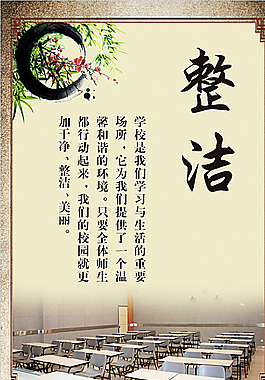 整洁
学校是我们学习与生活的重要
场所，它为我们提供了一个温
馨和谐的环境。只要全体师生
都行动起来，我们的校园就更
加干净、整洁、美丽。